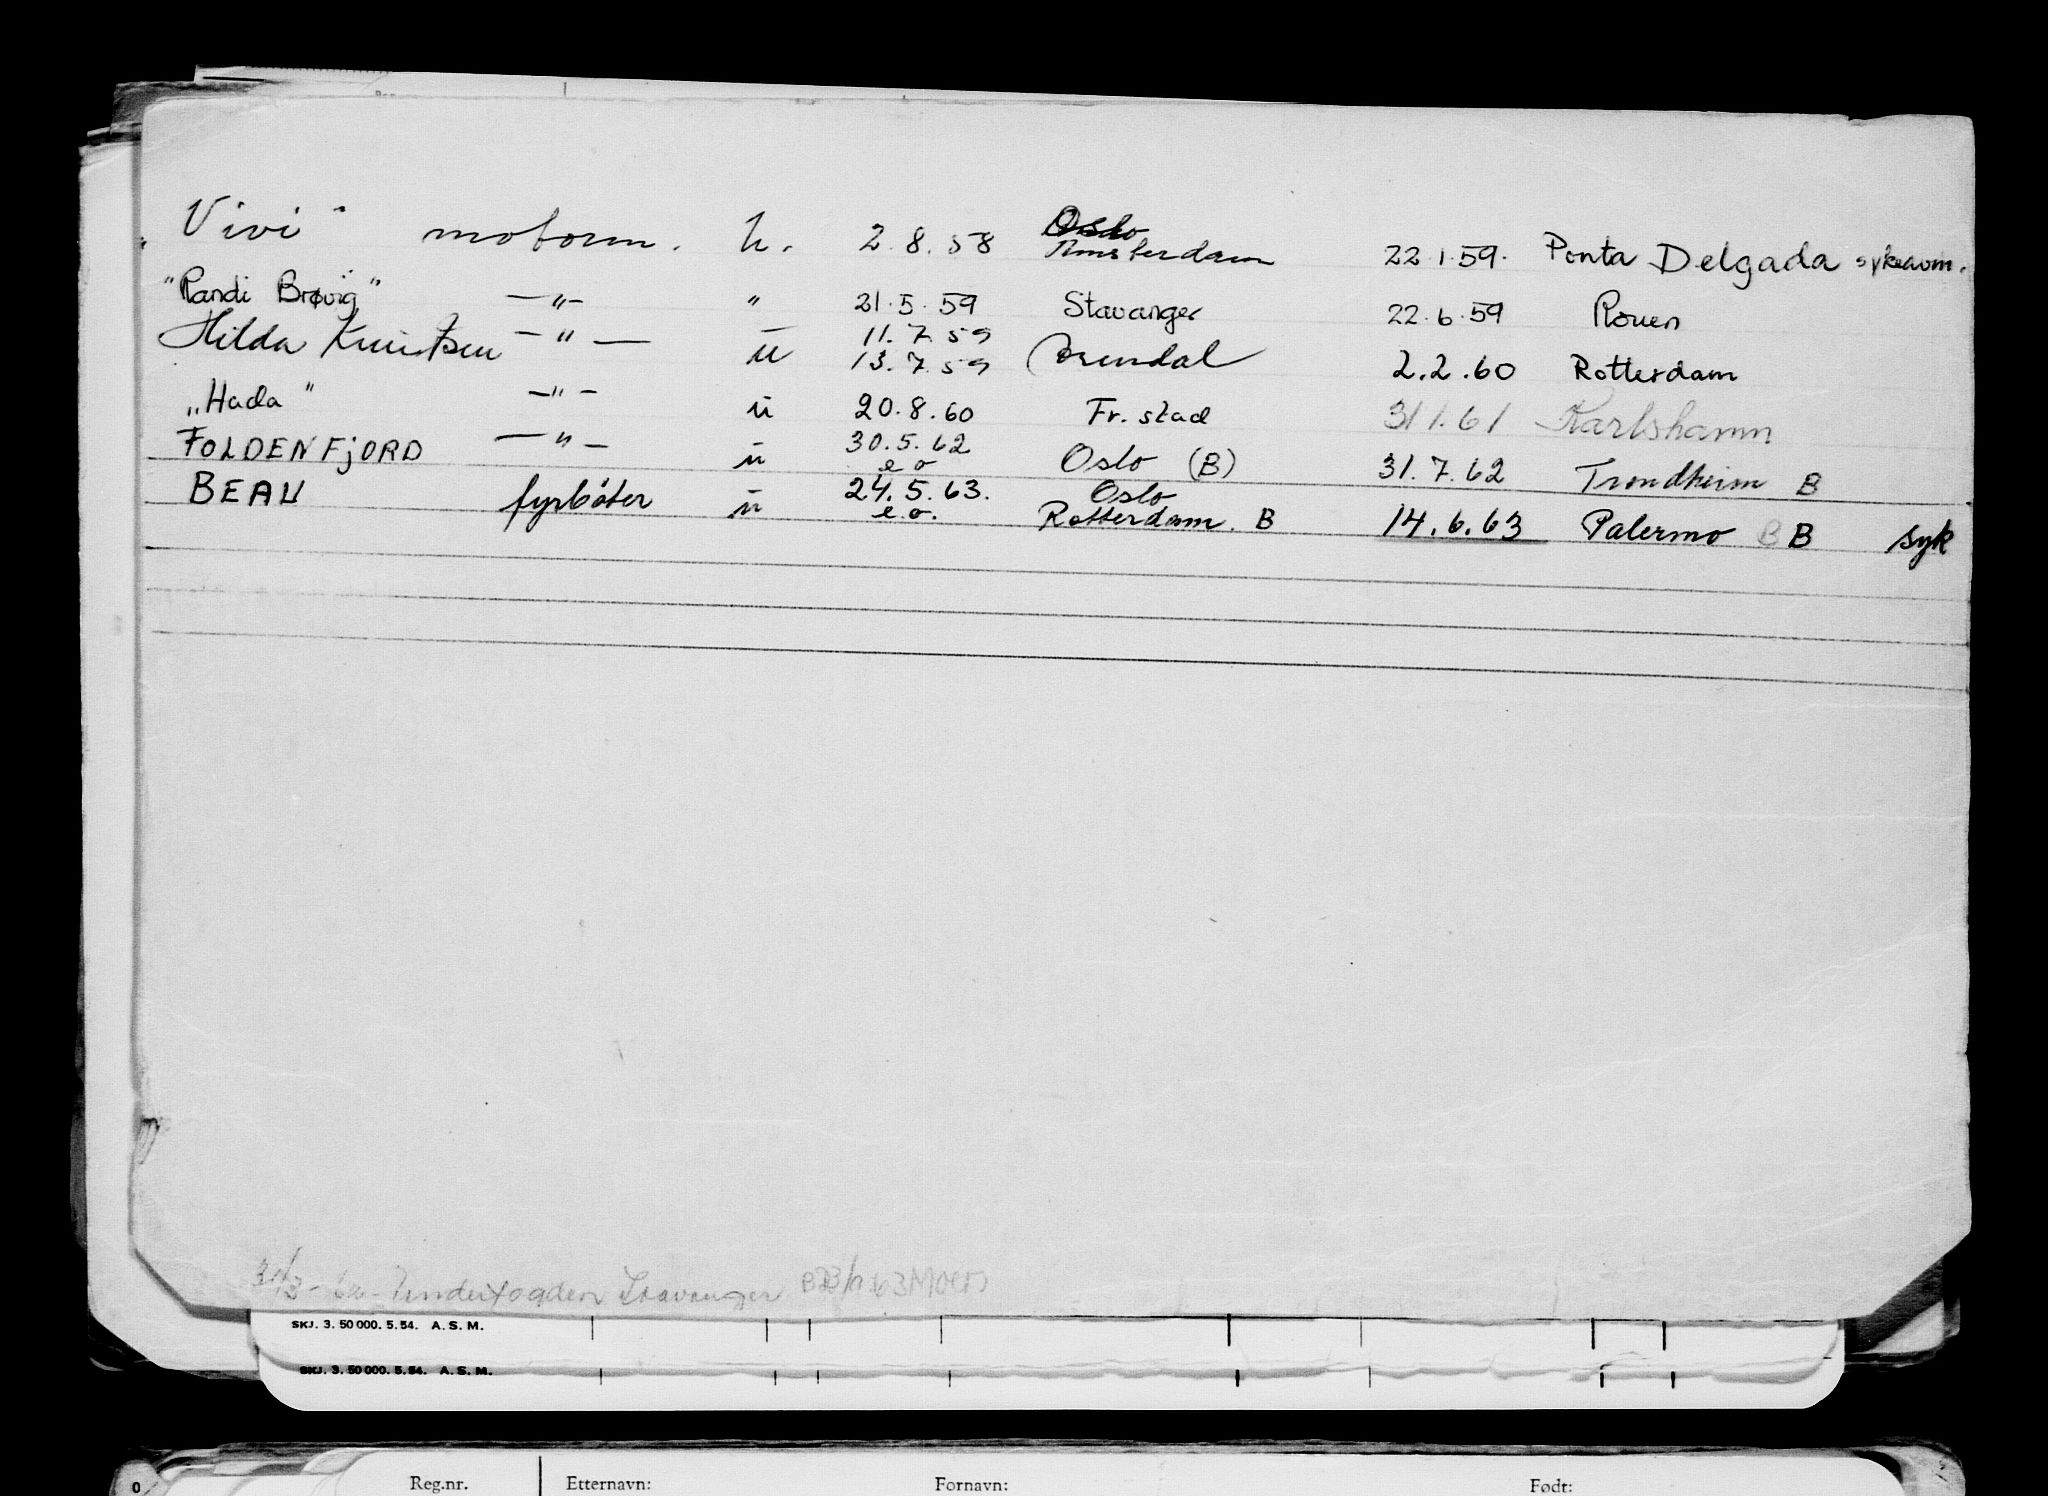 "Vivi" motorm. u. 2.8.58 Oslo Amsterdam 22.1.59. Ponta Delgada sykeavm.
"Randi Brøvig" —"— " 21.5.59 Stavanger 22.6.59 Rouen
Hilda Knutsen —"— u 11.7.59 13.7.59 Arendal 2.2.60 Rotterdam
"Hada" —"— u 20.8.60 Fr.stad 31/1.61 Karlshamn
FOLDENFJORD —"— u 30.5.62 e o Oslo (B) 31.7.62 Trondheim B
BEAU fyrbøter u 24.5.63. e.o. Oslo Rotterdam. B 14.6.63 Palermo B B syk
Stavanger
SKJ. 3. 50 000. 5. 54. A. S. M.
SKJ. 3. 50 000. 5. 54. A. S. M.
0 Reg.nr. Etternavn: Fornavn: Født: